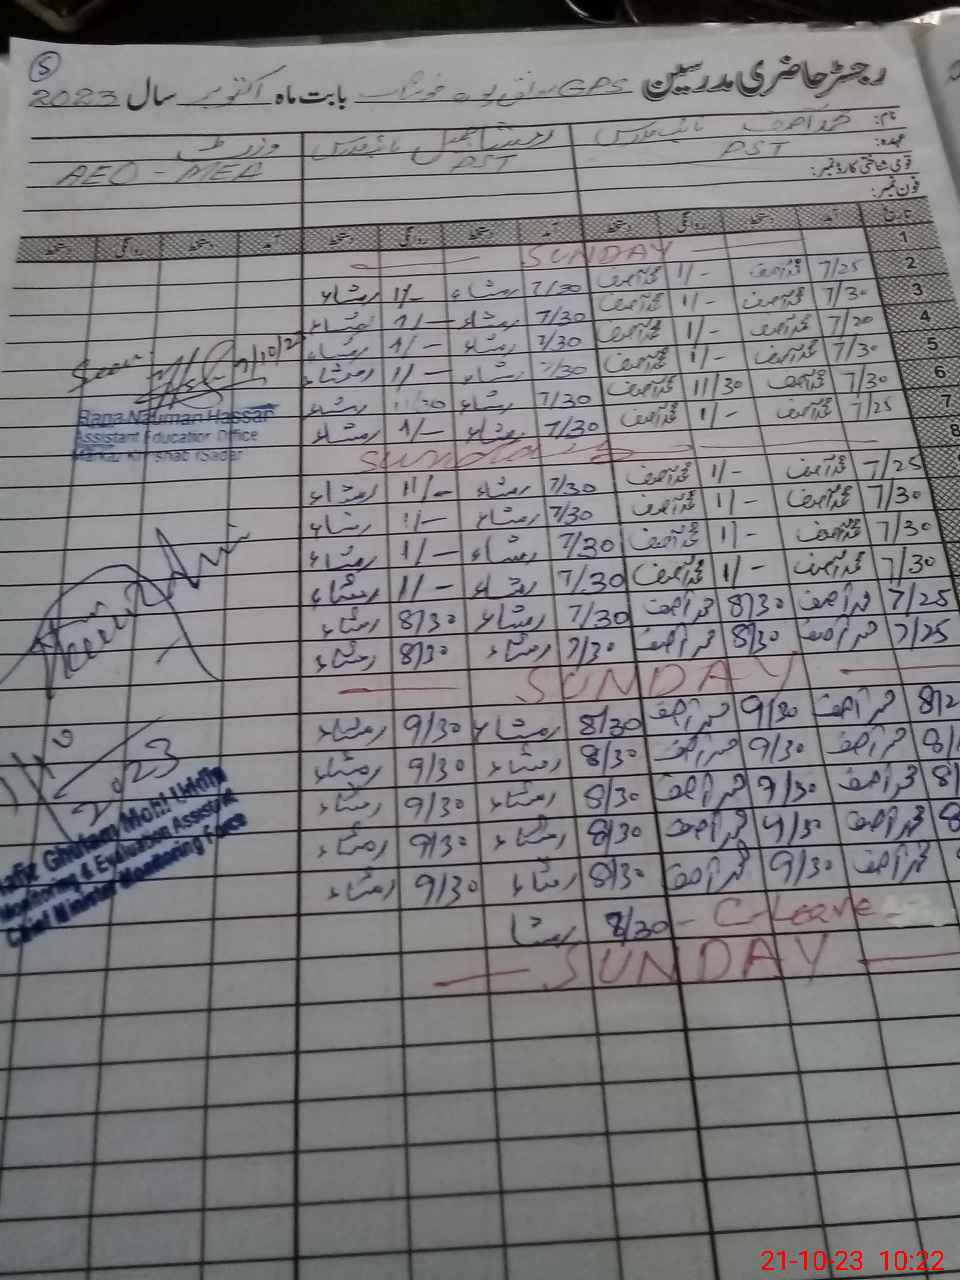 5
رجسٹر حاضری مدرسین GPS بابت ماہ اکتوبر سال 2023
نام: محمد آصف نائب مدرس
عہدہ: PST PST AEO - MEA
قومی شناختی کارڈ نمبر:
فون نمبر:
تاریخ آمد دستخط روانگی دستخط آمد دستخط روانگی دستخط آمد دستخط روانگی دستخط
1 SUNDAY
2 7/25 محمد آصف 1/- محمد آصف 7/30 رمشاء 1/- رمشاء
3 7/30 محمد آصف 1/- محمد آصف 7/30 رمشاء 1/- رمشاء
4 7/20 محمد آصف 1/- محمد آصف 7/30 رمشاء 1/- رمشاء
5 7/30 محمد آصف 1/- محمد آصف 7/30 رمشاء 1/- رمشاء
6 7/30 محمد آصف 11/30 محمد آصف 7/30 رمشاء 11/30 رمشاء
7 7/25 محمد آصف 1/- محمد آصف 7/30 رمشاء 1/- رمشاء
8 SUNDAY
7/25 محمد آصف 1/- محمد آصف 7/30 رمشاء 1/- رمشاء
7/30 محمد آصف 1/- محمد آصف 7/30 رمشاء 1/- رمشاء
7/30 محمد آصف 1/- محمد آصف 7/30 رمشاء 1/- رمشاء
7/30 محمد آصف 1/- محمد آصف 7/30 رمشاء 1/- رمشاء
7/25 محمد آصف 8/30 محمد آصف 7/30 رمشاء 8/30 رمشاء
7/25 محمد آصف 8/30 محمد آصف 7/30 رمشاء 8/30 رمشاء
SUNDAY
8/2 محمد آصف 9/30 محمد آصف 8/30 رمشاء 9/30 رمشاء
8/ محمد آصف 9/30 محمد آصف 8/30 رمشاء 9/30 رمشاء
8/ محمد آصف 9/30 محمد آصف 8/30 رمشاء 9/30 رمشاء
8 محمد آصف 9/30 محمد آصف 8/30 رمشاء 9/30 رمشاء
محمد آصف 9/30 محمد آصف 8/30 رمشاء 9/30 رمشاء
C-Leave - 8/30 رمشا
SUNDAY
Seen
Rana Nauman Hassan
Assistant Education Office
Markaz Khushab (Sadar)
2023
Hafiz Ghulam Mohi Uddin
Monitoring & Evaluation Assistant
Chief Minister Monitoring Force
21-10-23 10:22